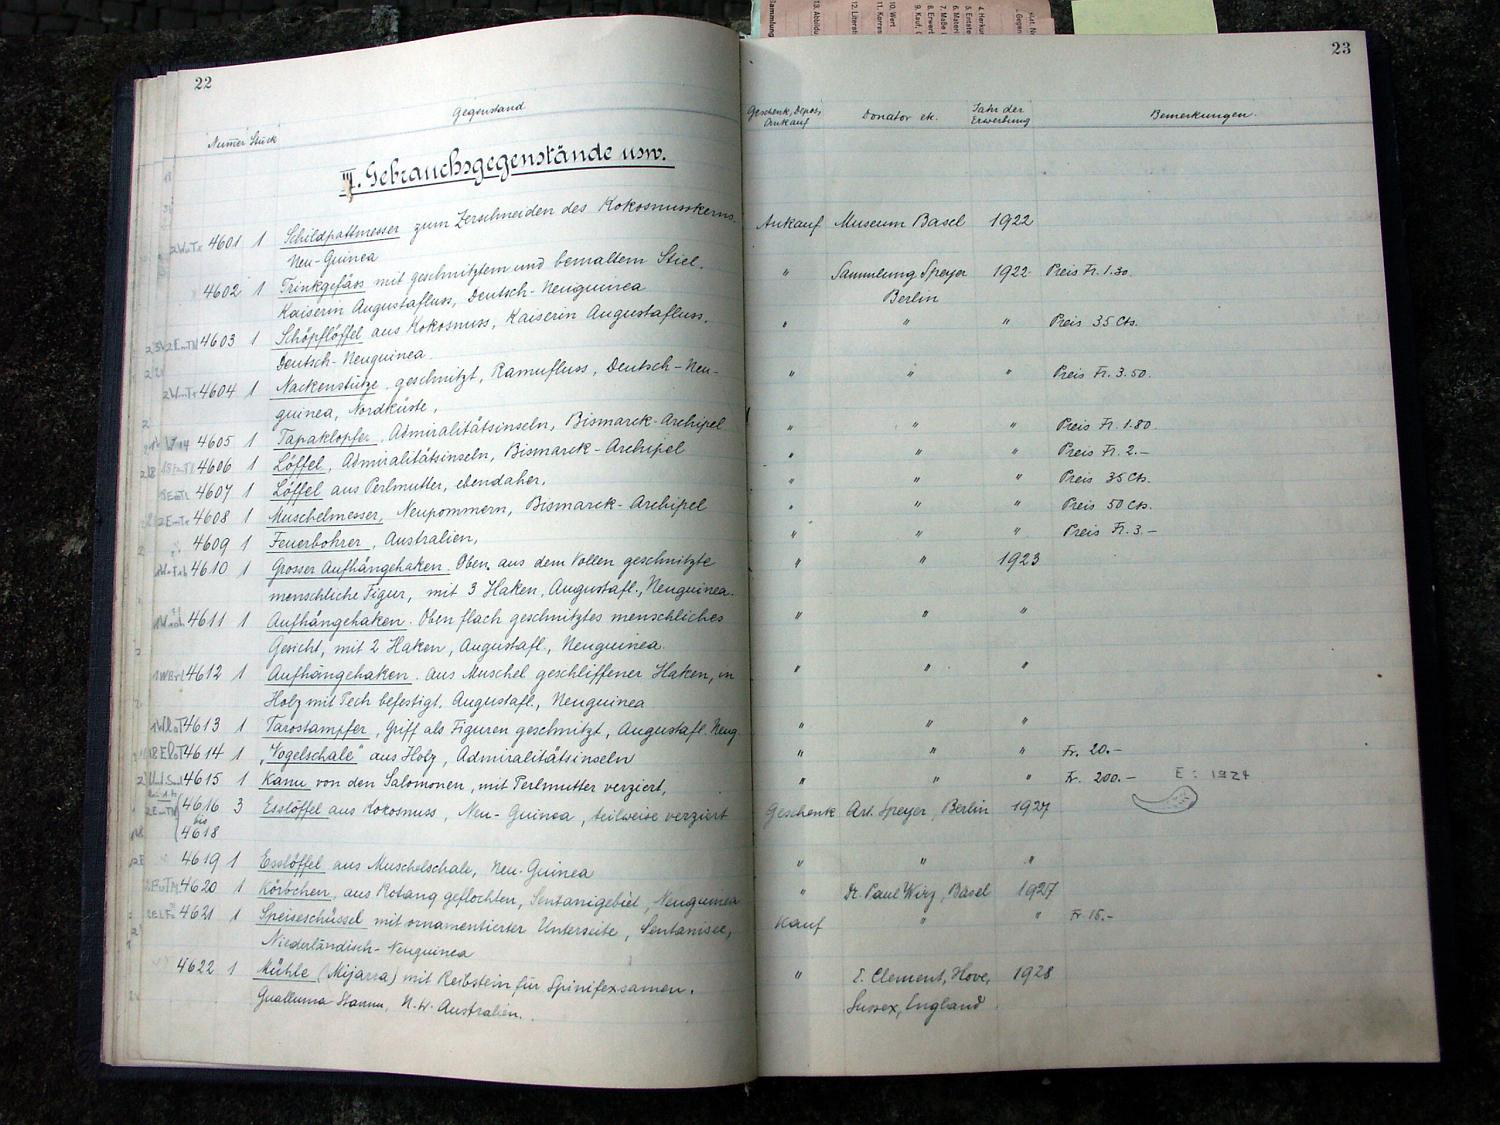 22
Gegenstand
Numer Stück
II. Gebrauchsgegenstände usw.
4601 1 Schildpattmesser zum Zerschneiden des Kokosnusskerns.
Neu-Guinea
4602 1 Trinkgefäss mit geschnitztem und bemaltem Stiel.
Kaiserin Augustafluss, Deutsch-Neuguinea
4603 1 Schöpflöffel aus Kokosnuss, Kaiserin Augustafluss.
Deutsch-Neuguinea.
4604 1 Nackenstütze, geschnitzt, Ramufluss, Deutsch-Neu-
guinea, Nordküste,
4605 1 Tapaklopfer, Admiralitätsinseln, Bismarck-Archipel
4606 1 Löffel, Admiralitätsinseln, Bismarck-Archipel
4607 1 Löffel aus Perlmutter, ebendaher,
4608 1 Muschelmesser, Neupommern, Bismarck-Archipel
4609 1 Feuerbohrer, Australien,
4610 1 Grosser Aufhängehaken. Oben, aus dem Vollen geschnitzte
menschliche Figur, mit 3 Haken, Augustafl., Neuguinea.
4611 1 Aufhängehaken. Oben flach geschnitztes menschliches
Gesicht, mit 2 Haken, Augustafl., Neuguinea.
4612 1 Aufhängehaken. aus Muschel geschliffener Haken, in
Holz mit Pech befestigt. Augustafl., Neuguinea
4613 1 Tarostampfer, Griff als Figuren geschnitzt, Augustafl. Neug.
4614 1 „Vogelschale" aus Holz, Admiralitätsinseln
4615 1 Kanu von den Salomonen, mit Perlmutter verziert,
4616 3 Esslöffel aus Kokosnuss, Neu-Guinea, teilweise verziert
bis
4618
4619 1 Esslöffel aus Muschelschale, Neu-Guinea
4620 1 Körbchen, aus Rotang geflochten, Sentanigebiet, Neuguinea
4621 1 Speiseschüssel mit ornamentierter Unterseite, Sentanisee,
Niederländisch-Neuguinea
4622 1 Mühle (Mijarra) mit Reibstein für Spinifexsamen.
N.W. Australien.
23
Geschenk, Depos, Ankauf
Donator etc.
Jahr der Erwerbung
Bemerkungen.
Ankauf Museum Basel 1922
" Sammlung Speyer 1922 Preis Fr. 1.30.
Berlin
" " " Preis 35 Cts.
" " " Preis Fr. 3.50.
" " " Preis Fr. 1.80
" " " Preis Fr. 2.-
" " " Preis 35 Cts.
" " " Preis 50 Cts.
" " " Preis Fr. 3.-
" " 1923
" " "
" " "
" " "
" " " Fr. 20.-
" " " Fr. 200.- E: 1927
Geschenk Art. Speyer, Berlin 1927
" " "
" Dr. Paul Wirz, Basel 1927
Kauf " " Fr. 15.-
" E. Clement, Hove, 1928
Sussex, England